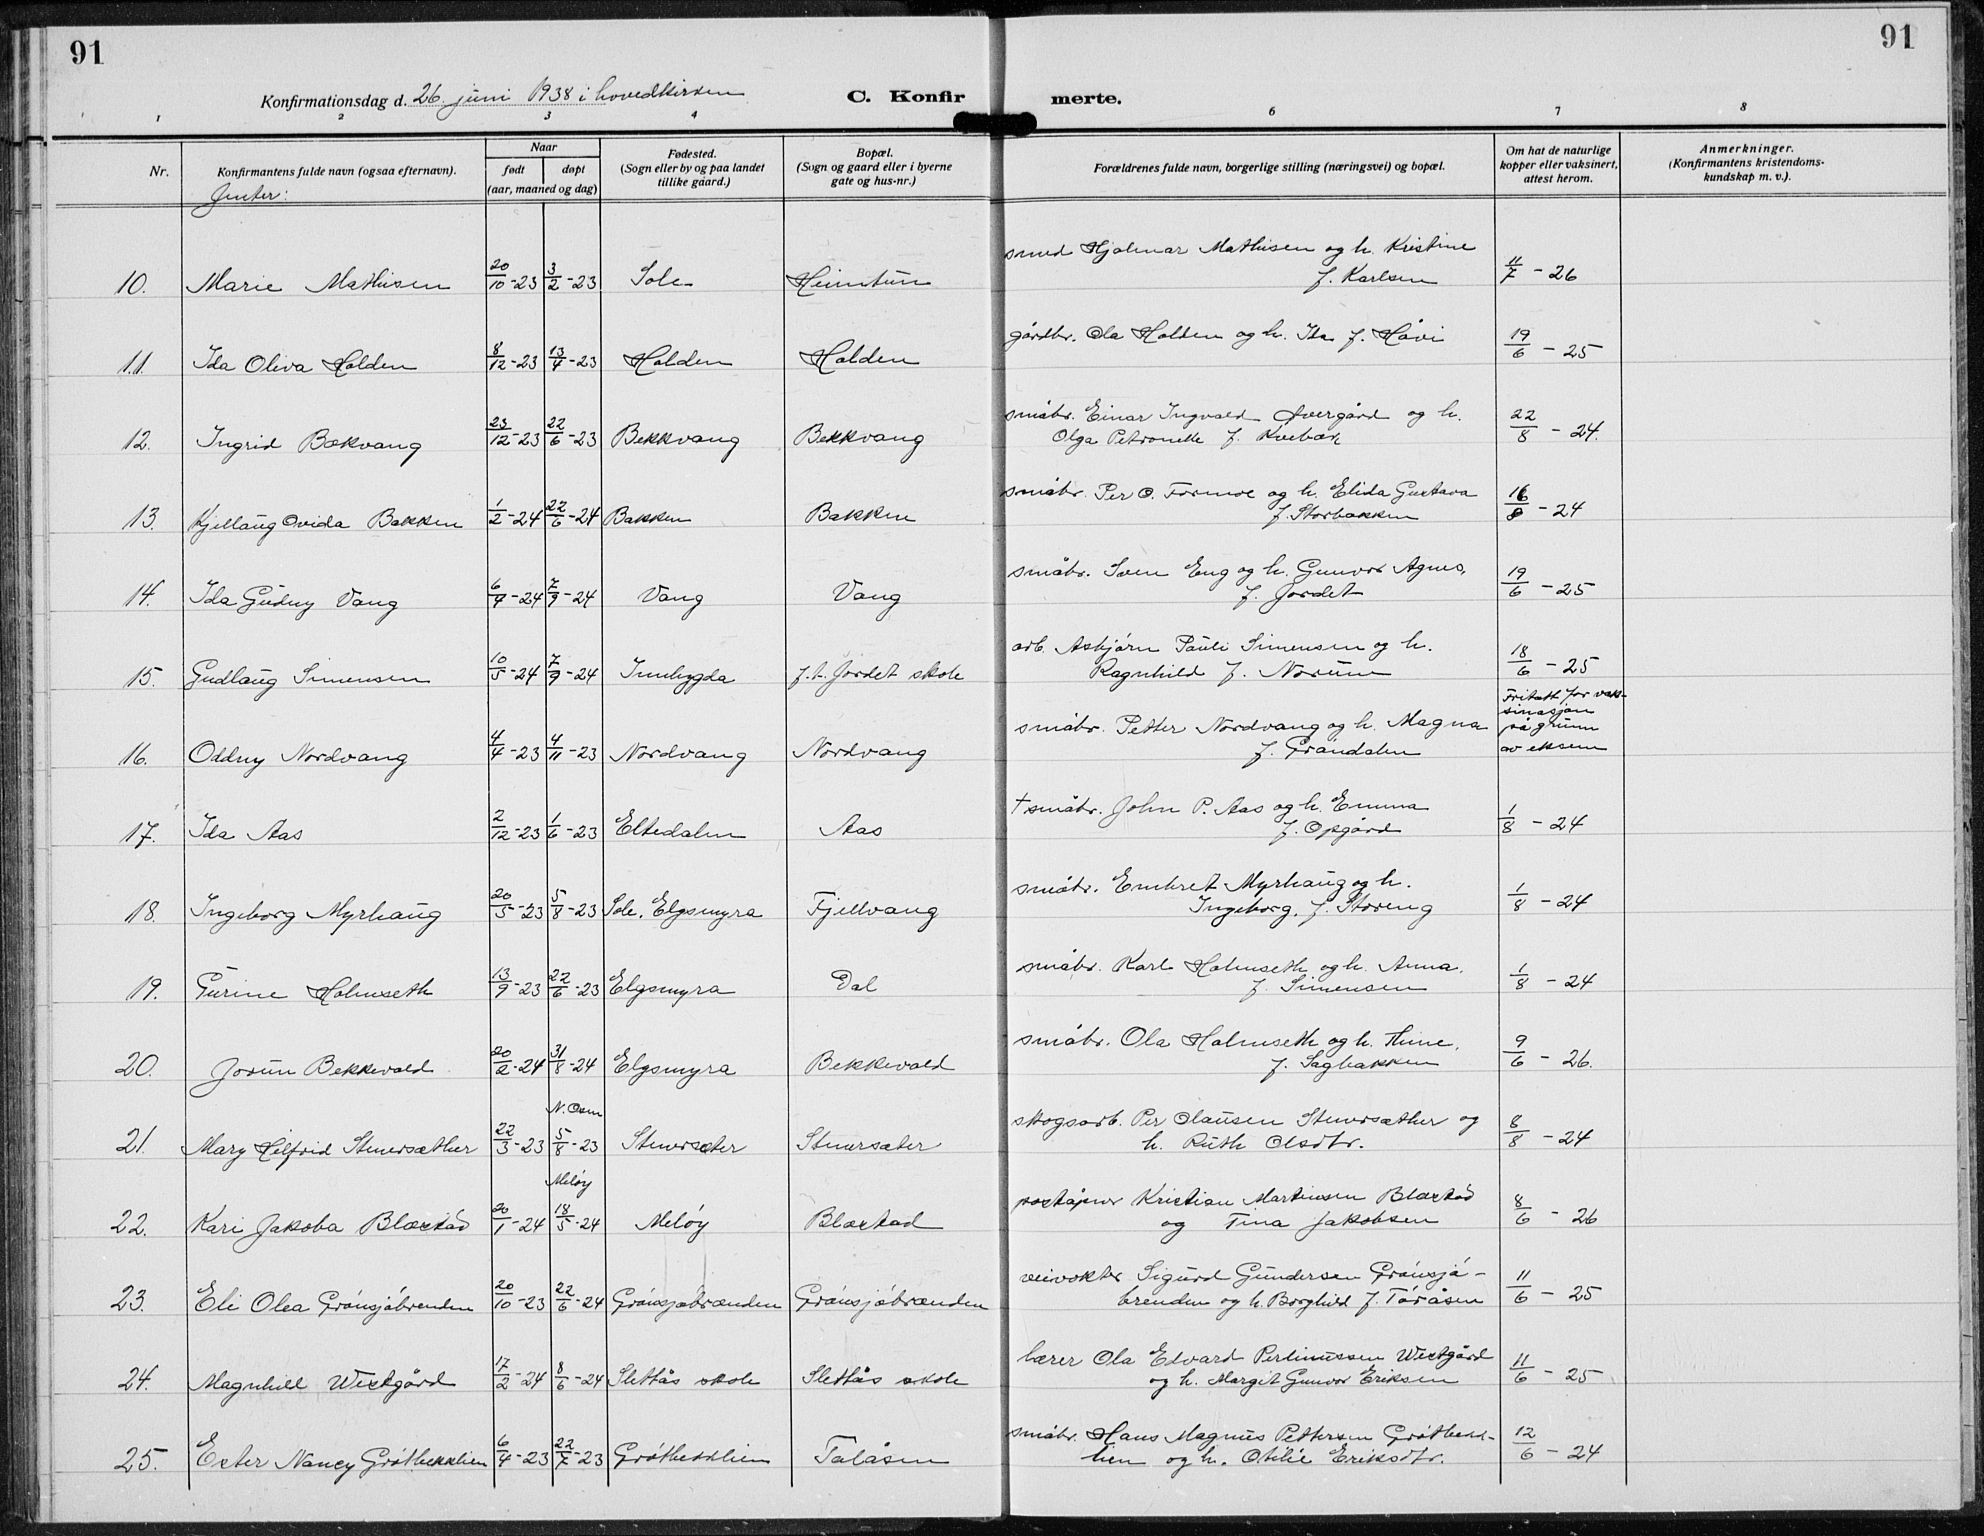 91
91
Konfirmationsdag d. 26. juni 1938 i hovedkirken
C. Konfirmerte.
1 2 3 4 6 7 8
Nr.
Konfirmantens fulde navn (ogsaa efternavn).
Jenter:
Naar
født
døpt
(aar, maaned og dag)
Fødested.
(Sogn eller by og paa landet
tillike gaard.)
Bopæl.
(Sogn og gaard eller i byerne
gate og hus-nr.)
Forældrenes fulde navn, borgerlige stilling (næringsvei) og bopæl.
Om hat de naturlige
kopper eller vaksinert,
attest herom.
Anmerkninger.
(Konfirmantens kristendoms-
kundskap m. v.).
smed Hjalmar Mathisen og h. Kristine
10. Marie Mathisen 20/10-23 3/2-23 Sole Heimtun f. Karlsen 11/7-26
gårdbr. Ola Holden og h. Ida f. Håvi 19/6-25
11. Ida Oliva Holden 8/12-23 13/4-23 Holden Holden
småbr. Einar Ingvald Øvergård og h.
12. Ingrid Bækvang 23/12-23 22/6-23 Bekkvang Bekkvang Olga Petronelle f. Kvebæk 22/8-24.
småbr. Per O. Formoe og h. Elida Gustava
13. Kjellaug Ovida Bakken 1/2-24 22/6-24 Bakken Bakken f. Storbakken 16/8-24
småbr. Sven Eng og h. Gunvor Agnes,
14. Ida Gudny Vang 6/7-24 7/9-24 Vang Vang f. Jordet 19/6-25
arb. Asbjörn Pauli Simensen og h.
15. Gudlaug Simensen 10/5-24 7/9-24 Innbygda f.t. Jordet skole Ragnhild f. Norum 18/6-25
småbr. Petter Nordvang og h. Magna
Fritatt for vak-
sinasjon
på grunn
av eksem
16. Oddny Nordvang 4/4-23 4/11-23 Nordvang Nordvang f. Grandalen
† småbr. John P. Aas og h. Emma
17. Ida Aas 2/12-23 1/6-23 Eltedalen Aas f. Opgård 1/8-24
småbr. Embret Myrhaug og h.
18. Ingeborg Myrhaug 20/5-23 5/8-23 Sole, Elgsmyra Fjellvang Ingeborg, f. Storeng 1/8-24
småbr. Karl Holmseth og h. Anna,
19. Gurine Holmseth 13/9-23 22/6-23 Elgsmyra Dal f. Simensen 1/8-24
småbr. Ola Holmseth og h. Thine,
20. Jorun Bekkevold 20/2-24 31/8-24 Elgsmyra Bekkevold f. Sagbakken 9/6-26.
N. Osen
skogsarb. Per Olausen Stenersæther og
21. Mary Helfrid Stenersæther 22/3-23 5/8-23 Stenersæter Stenersæter h. Ruth Olsdtr. 8/8-24
Meløy
poståpner Kristian Martinsen Blæstad
22. Kari Jakoba Blæstad 20/1-24 18/5-24 Meløy Blæstad og Tina Jakobsen 8/6-26
veivokter Sigurd Gundersen Grönsjö-
23. Eli Olea Grönsjöbrenden 20/10-23 22/6-24 Grönsjöbrænden Grönsjöbrænden brenden og h. Borghild f. Töråsen 11/6-25
lærer Ola Edvard Perlinussen Westgård
24. Magnhild Westgård 17/2-24 8/6-24 Slettås skole Slettås skole og h. Margit Gunvor Eriksen 11/6-25
småbr. Hans Magnus Pettersen Grötbekk-
25. Ester Nancy Grötbekklien 6/4-23 22/7-23 Grötbekklien Talåsen lien og h. Otilie Eriksdtr. 12/6-24